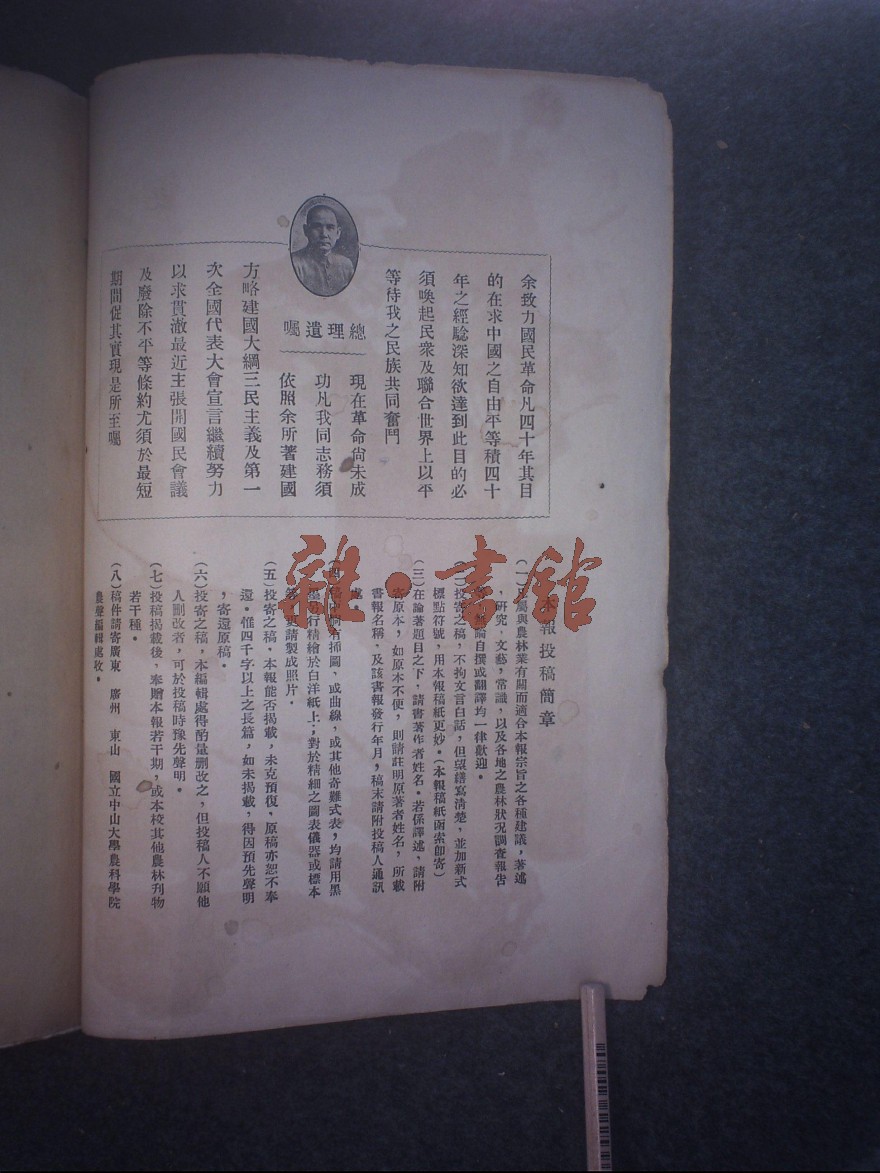 余致力國民革命凡四十年其目
的在求中國之自由平等積四十
年之經騐深知欲達到此目的必
須喚起民衆及聯合世界上以平
等待我之民族共同奮鬥
總理遺囑
現在革命尙未成
功凡我同志務須
依照余所著建國
方略建國大綱三民主義及第一
次全國代表大會宣言繼續努力
以求貫澈最近主張開國民會議
及廢除不平等條約尤須於最短
期間促其實現是所至囑
本報投稿簡章
(一)凡屬與農林業有關而適合本報宗旨之各種建議，著述
，研究，文藝，常識，以及各地之農林狀況調查報告
論自撰或翻譯均一律歡迎。
(二)投寄之稿，不拘文言白話，但望繕寫淸楚，並加新式
標點符號，用本報稿紙更妙。(本報稿紙函索卽寄)
(三)在論著題目之下，請書著作者姓名。若係譯述，請附
寄原本，如原本不便，則請註明原著者姓名，所載
書報名稱，及該書報發行年月，稿末請附投稿人通訊
處。
(四)稿中如有插圖，或曲線，或其他奇難式表，均請用黑
墨另行精繪於白洋紙上；對於精細之圖表儀器或標本
更請製成照片。
(五)投寄之稿。本報能否揭載，未克預復，原稿亦恕不奉
還。惟四千字以上之長篇，如未揭載，得因預先聲明
，寄還原稿。
(六)投寄之稿，本編輯處得酌量删改之，但投稿人不願他
人删改者，可於投稿時豫先聲明。
(七)投稿揭載後，奉贈本報若干期，或本校其他農林刋物
若干種。
(八)稿件請寄廣東 廣州 東山 國立中山大學農科學院
農聲編輯處收。
雜·書館